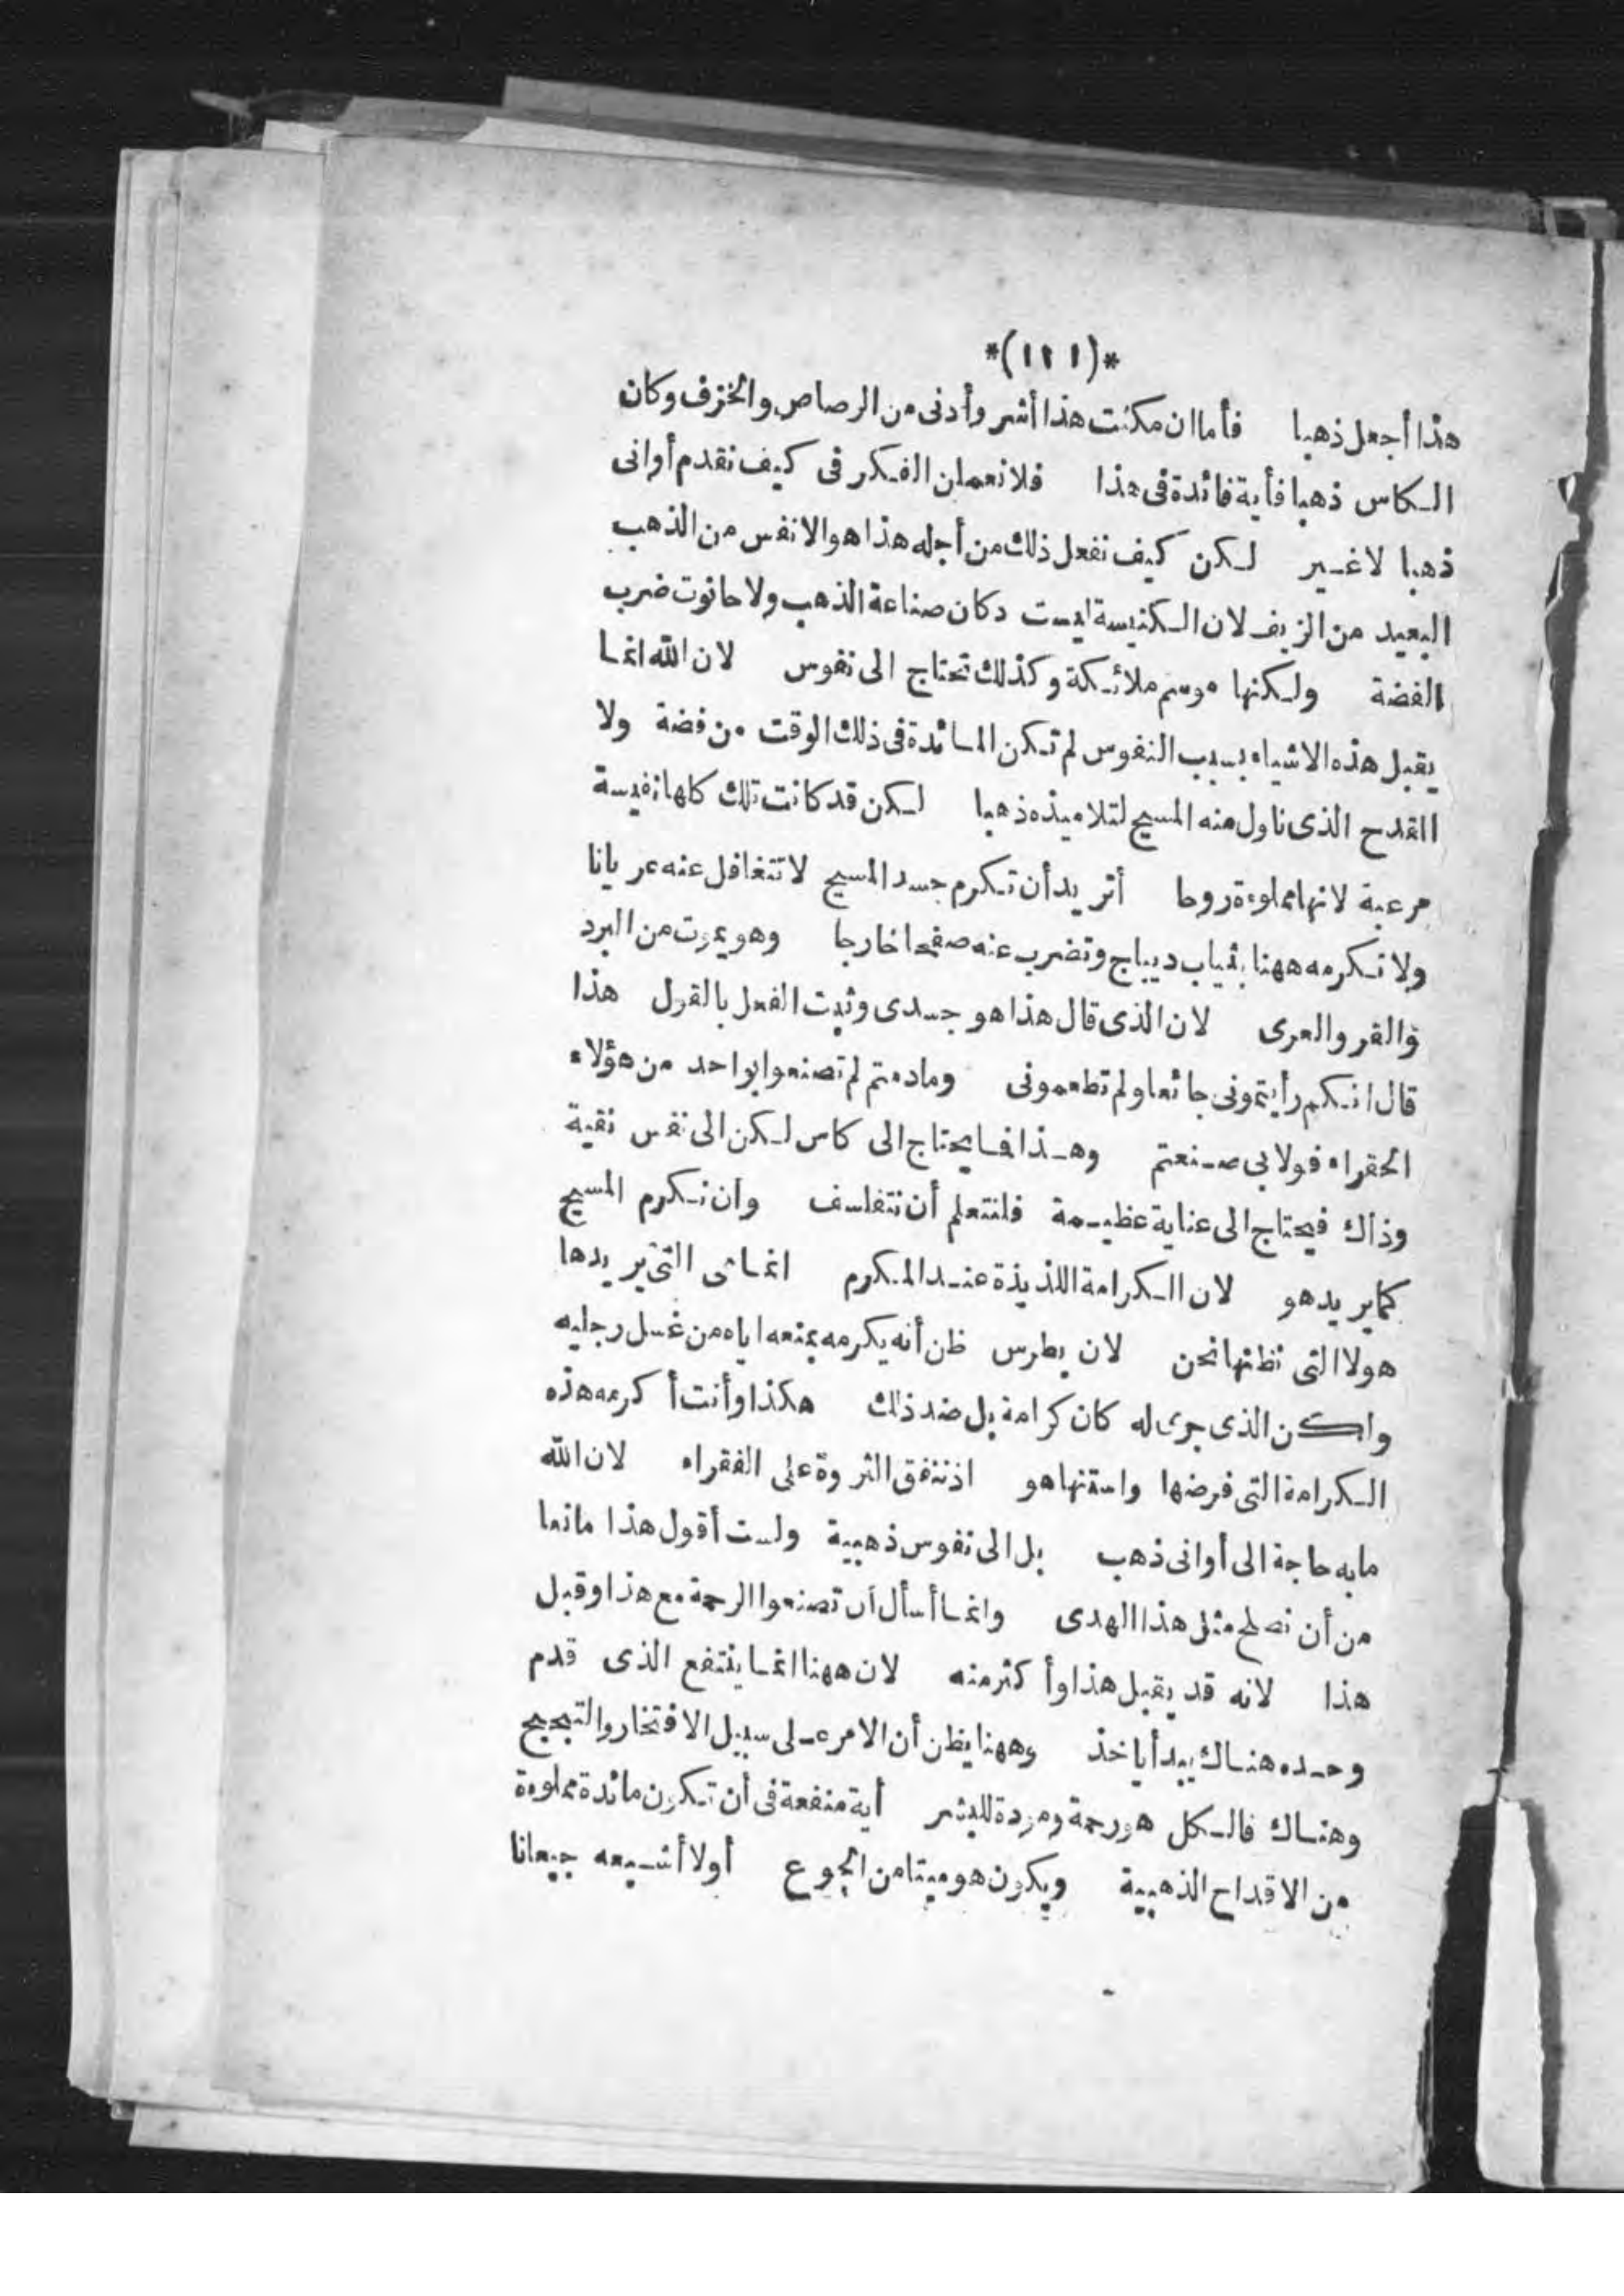 *(١٢١)*
هذا أجعل ذهبا فأما ان مكثت هذا أشر وأدنى من الرصاص والخزف وكان
الكاس ذهبا فأية فائدة فى هذا فلا نعملن الفكر فى كيف نقدم أوانى
ذهبا لا غير لكن كيف نفعل ذلك من أجله هذا هو الانفس من الذهب
البعيد من الزيف لان الكنيسة ليست دكان صناعة الذهب ولا حانوت ضرب
الفضة ولكنها موسم ملائكة وكذلك تحتاج الى نفوس لان الله انما
يقبل هذه الاشياء بسبب النفوس لم تكن المائدة فى ذلك الوقت من فضة ولا
القدح الذى ناول منه المسيح لتلاميذه ذهبا لكن قد كانت تلك كلها نفيسة
مرعبة لانها مملوءة روحا أتريد أن تكرم جسد المسيح لا تتغافل عنه عريانا
ولا تكرمه ههنا بثياب ديباج وتضرب عنه صفحا خارجا وهو يموت من البرد
والقر والعرى لان الذى قال هذا هو جسدى وثبت الفعل بالقول هذا
قال انكم رأيتمونى جائعا ولم تطعمونى ومادمتم لم تصنعوا بواحد من هؤلاء
الحقراء فولا بى صنعتم وهذا فما يحتاج الى كاس لكن الى نفس نقية
وذاك فيحتاج الى عناية عظيمة فلنتعلم أن نتفلسف وان نكرم المسيح
كما يريد هو لان الكرامة اللذيذة عند المكرم انما هى التى يريدها
هو لا التى نظنها نحن لان بطرس ظن أنه يكرمه بمنعه اياه من غسل رجليه
ولكن الذى جرى له كان كرامة بل ضد ذلك هكذا وأنت أكرمه هذه
الكرامة التى فرضها واستنها هو اذ تنفق الثروة على الفقراء لان الله
ما به حاجة الى أوانى ذهب بل الى نفوس ذهبية ولست أقول هذا مانعا
من أن نصلح مثل هذا الهدى وانما أسأل أن تصنعوا الرحمة مع هذا وقبل
هذا لانه قد يقبل هذا وأكثر منه لان ههنا انما ينتفع الذى قدم
وحده هناك يبدأ ياخذ وههنا يظن أن الامر على سبيل الافتخار والتبجح
وهناك فالكل هو رحمة ومودة للبشر أية منفعة فى أن تكون مائدة مملوءة
من الاقداح الذهبية ويكون هو ميتا من الجوع أولا أشبعه جيعانا